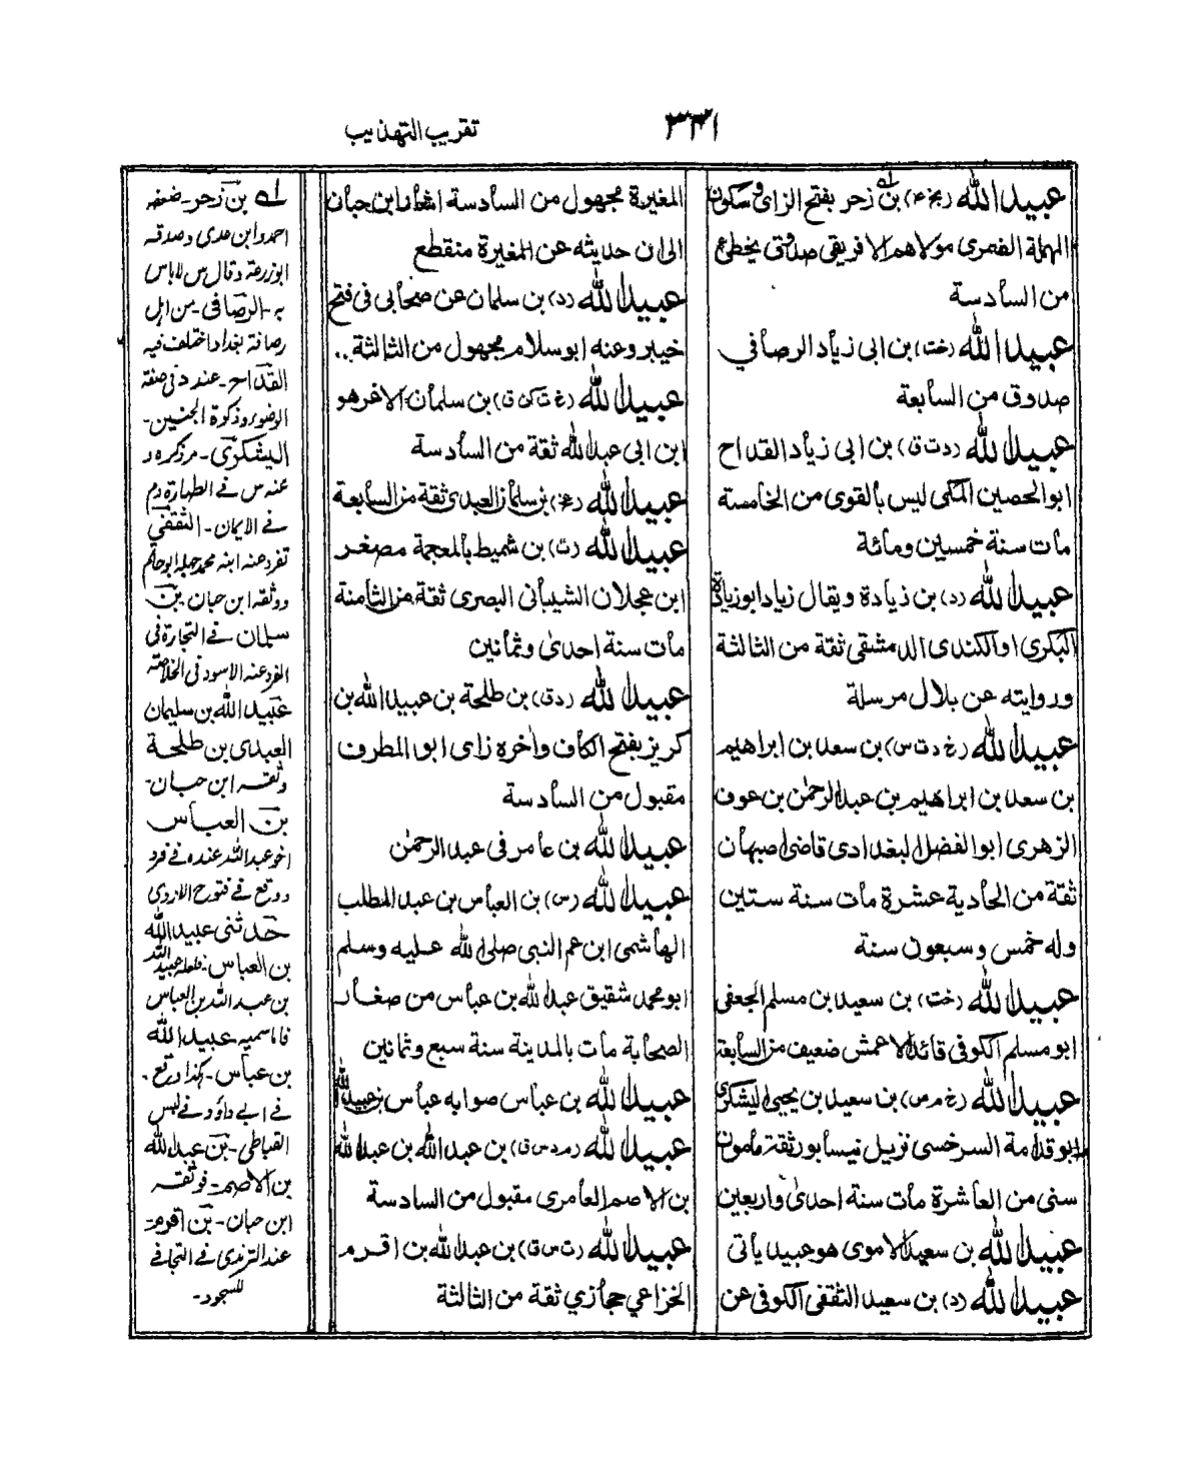 ۳۴۱
تقريب التهذيب
عبيد الله (بخ ٤) بن زحر بفتح الزاى وسكون
المهملة الضمرى مولاهم الافريقى صدوق يخطئ
من السأدسة
عبيد الله (خت) بن ابى زياد الرصأفي
صدوق من السأبعة
عبيد الله (د ت ق) بن ابى زيأد القداح
ابو الحصين المكى ليس بألقوى من الخامسة
مأت سنة خمسين ومائة
عبيد الله (د) بن زيادة ويقال زياد ابو زيادة
البكرى او الكندى الدمشقى ثقة من الثالثة
وروايته عن بلال مرسلة
عبيد الله (خ د ت س) بن سعد بن ابراهيم
بن سعد بن ابراهيم بن عبد الرحمٰن بن عوف
الزهرى ابو الفضل البغدادى قاضى اصبهأن
ثقة من الحأدية عشرة مأت سنة ستين
وله خمس وسبعون سنة
عبيد الله (خت) بن سعيد بن مسلم الجعفى
ابو مسلم الكوفى قائد الاعمش ضعيف من السأبعة
عبيد الله (خ م س) بن سعيد بن يحيى اليشكرى
ابو قدامة السرخسى نزيل نيسأبور ثقة مأمون
سنى من العأشرة مأت سنة احدىٰ واربعين
عبيد الله بن سعيد الاموى هو عبيد يأتى
عبيد الله (د) بن سعيد الثقفى الكوفى عن
المغيرة مجهول من السأدسة اشأر ابن حبأن
الى ان حديثه عن المغيرة منقطع
عبيد الله (د) بن سلمان عن صحأبى فى فتح
خيبر وعنه ابو سلام مجهول من الثالثة..
عبيد الله (خ ت كن ق) بن سلمأن الاغر هو
ابن ابى عبد الله ثقة من السأدسة
عبيد الله (عخ) بن سلمأن العبدى ثقة من السأبعة
عبيد الله (ت) بن شميط بألمعجمة مصغر
ابن عجلان الشيبأنى البصرى ثقة من الثأمنة
مأت سنة احدىٰ وثمأنين
عبيد الله (د ق) بن طلحة بن عبيد الله بن
كريز بفتح الكأف وأخره زاى ابو المطرف
مقبول من السأدسة
عبيد الله بن عأمر فى عبد الرحمٰن
عبيد الله (س) بن العبأس بن عبد المطلب
الهأشمى ابن عم النبى صلى الله عليه وسلم
ابو محمد شقيق عبد الله بن عبأس من صغأر
الصحأبة مأت بالمدينة سنة سبع وثمأنين
عبيد الله بن عبأس صوابه عبأس بن عبيد الله
عبيد الله (م د س ق) بن عبد الله بن عبد الله
بن الاصم العأمرى مقبول من السادسة
عبيد الله (ت س ق) بن عبد الله بن اقرم
الخزاعي حجأزي ثقة من الثالثة
له بن زحر - ضعفه
احمد وابن عدى وصدقه
ابو زرعة وقال س لا باس
به - الرصافى - من اهل
رصافة بغداد اختلف فيه
القداح - عند د فى صفة
الوضوء وذكوة الجنين -
اليشكرى - م ذكره د
عنه س فے الطهارة و م
فے الايمان - الثقفى
تفرد عنه ابنه محمد جهله ابو حاتم
ووثقه ابن حبان - بن
سلمان فے التجارة فى
تفرد عنه الاسود فى الخلاصة
عبيد الله بن سليمان
العبدى بن طلحة
وثقه ابن حبان -
بن العباس
اخو عبد الله عنده فے فرد
ووقع فے فتوح الازدى
حدثنى عبيد الله
بن العباس - فلعله عبيد الله
بن عبد الله بن العباس
فاما سميه عبيد الله
بن عباس - كذا وقع -
فے ابى داؤد فے لبس
القباطى - بن عبد الله
بن الاصم - وثقه
ابن حبان - بن اقرم -
عند الترمذى فے التجافے
للسجود -